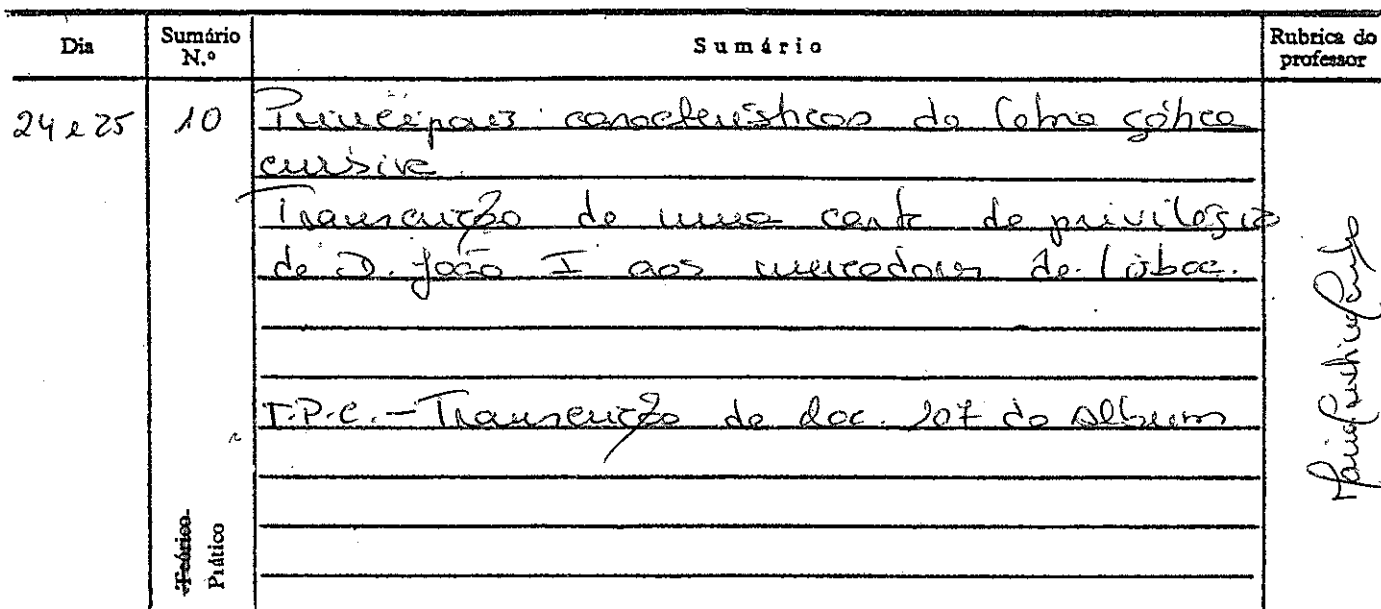 Dia
Sumário N.º
Sumário
Rubrica do professor
24 e 25
10
Principais características da letra gótica
cursiva.
Transcrição de uma carta de privilégio
de D. João I aos mercadores de Lisboa.
T.P.C. - Transcrição do doc. 107 do Álbum
Teórico
Prático
Maria